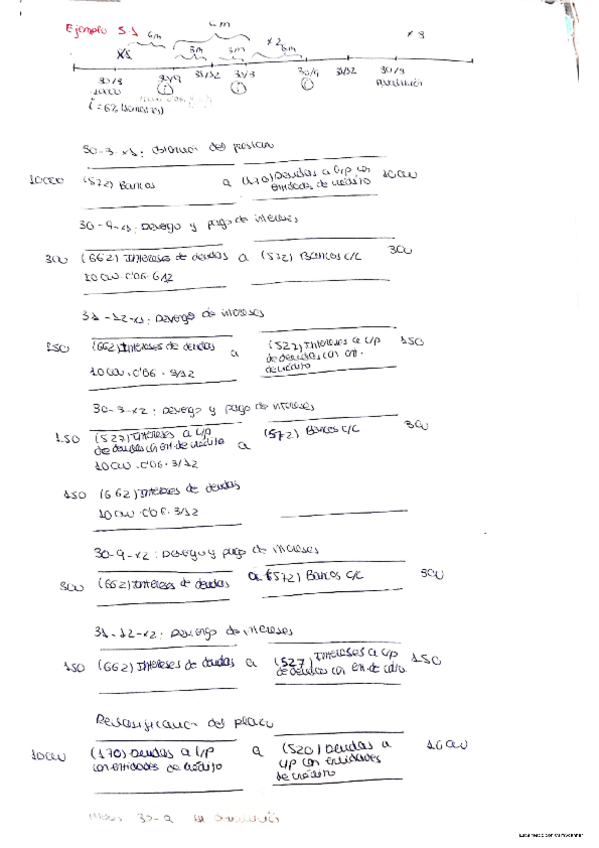 Ejemplo 5.1
6m
6m
3m 3m x2 6m x3
x1
30/3 30/9 31/12 30/3 30/9 31/12 30/3
10000
i = 6% (semestres)
30-3-x1: Obtención del préstamo
10000 (572) Bancos a (170) Deudas a L/p con 10000
entidades de crédito
30-9-x1: Devengo y pago de intereses
300 (662) Intereses de deudas a (572) Bancos c/c 300
10000·0'06·6/12
31-12-x1: Devengo de intereses
150 (662) Intereses de deudas a (527) Intereses a c/p 150
de deudas con ent.
de crédito
10000·0'06·3/12
30-3-x2: Devengo y pago de intereses
150 (527) Intereses a c/p a (572) Bancos c/c 300
de deudas con ent. de crédito
10000·0'06·3/12
150 (662) Intereses de deudas
10000·0'06·3/12
30-9-x2: Devengo y pago de intereses
300 (662) Intereses de deudas a (572) Bancos c/c 300
31-12-x2: Devengo de intereses
150 (662) Intereses de deudas a (527) Intereses a c/p 150
de deudas con ent. de cdto.
Reclasificación del plazo
10000 (170) Deudas a L/p a (520) Deudas a 10000
con entidades de crédito c/p con entidades
de crédito